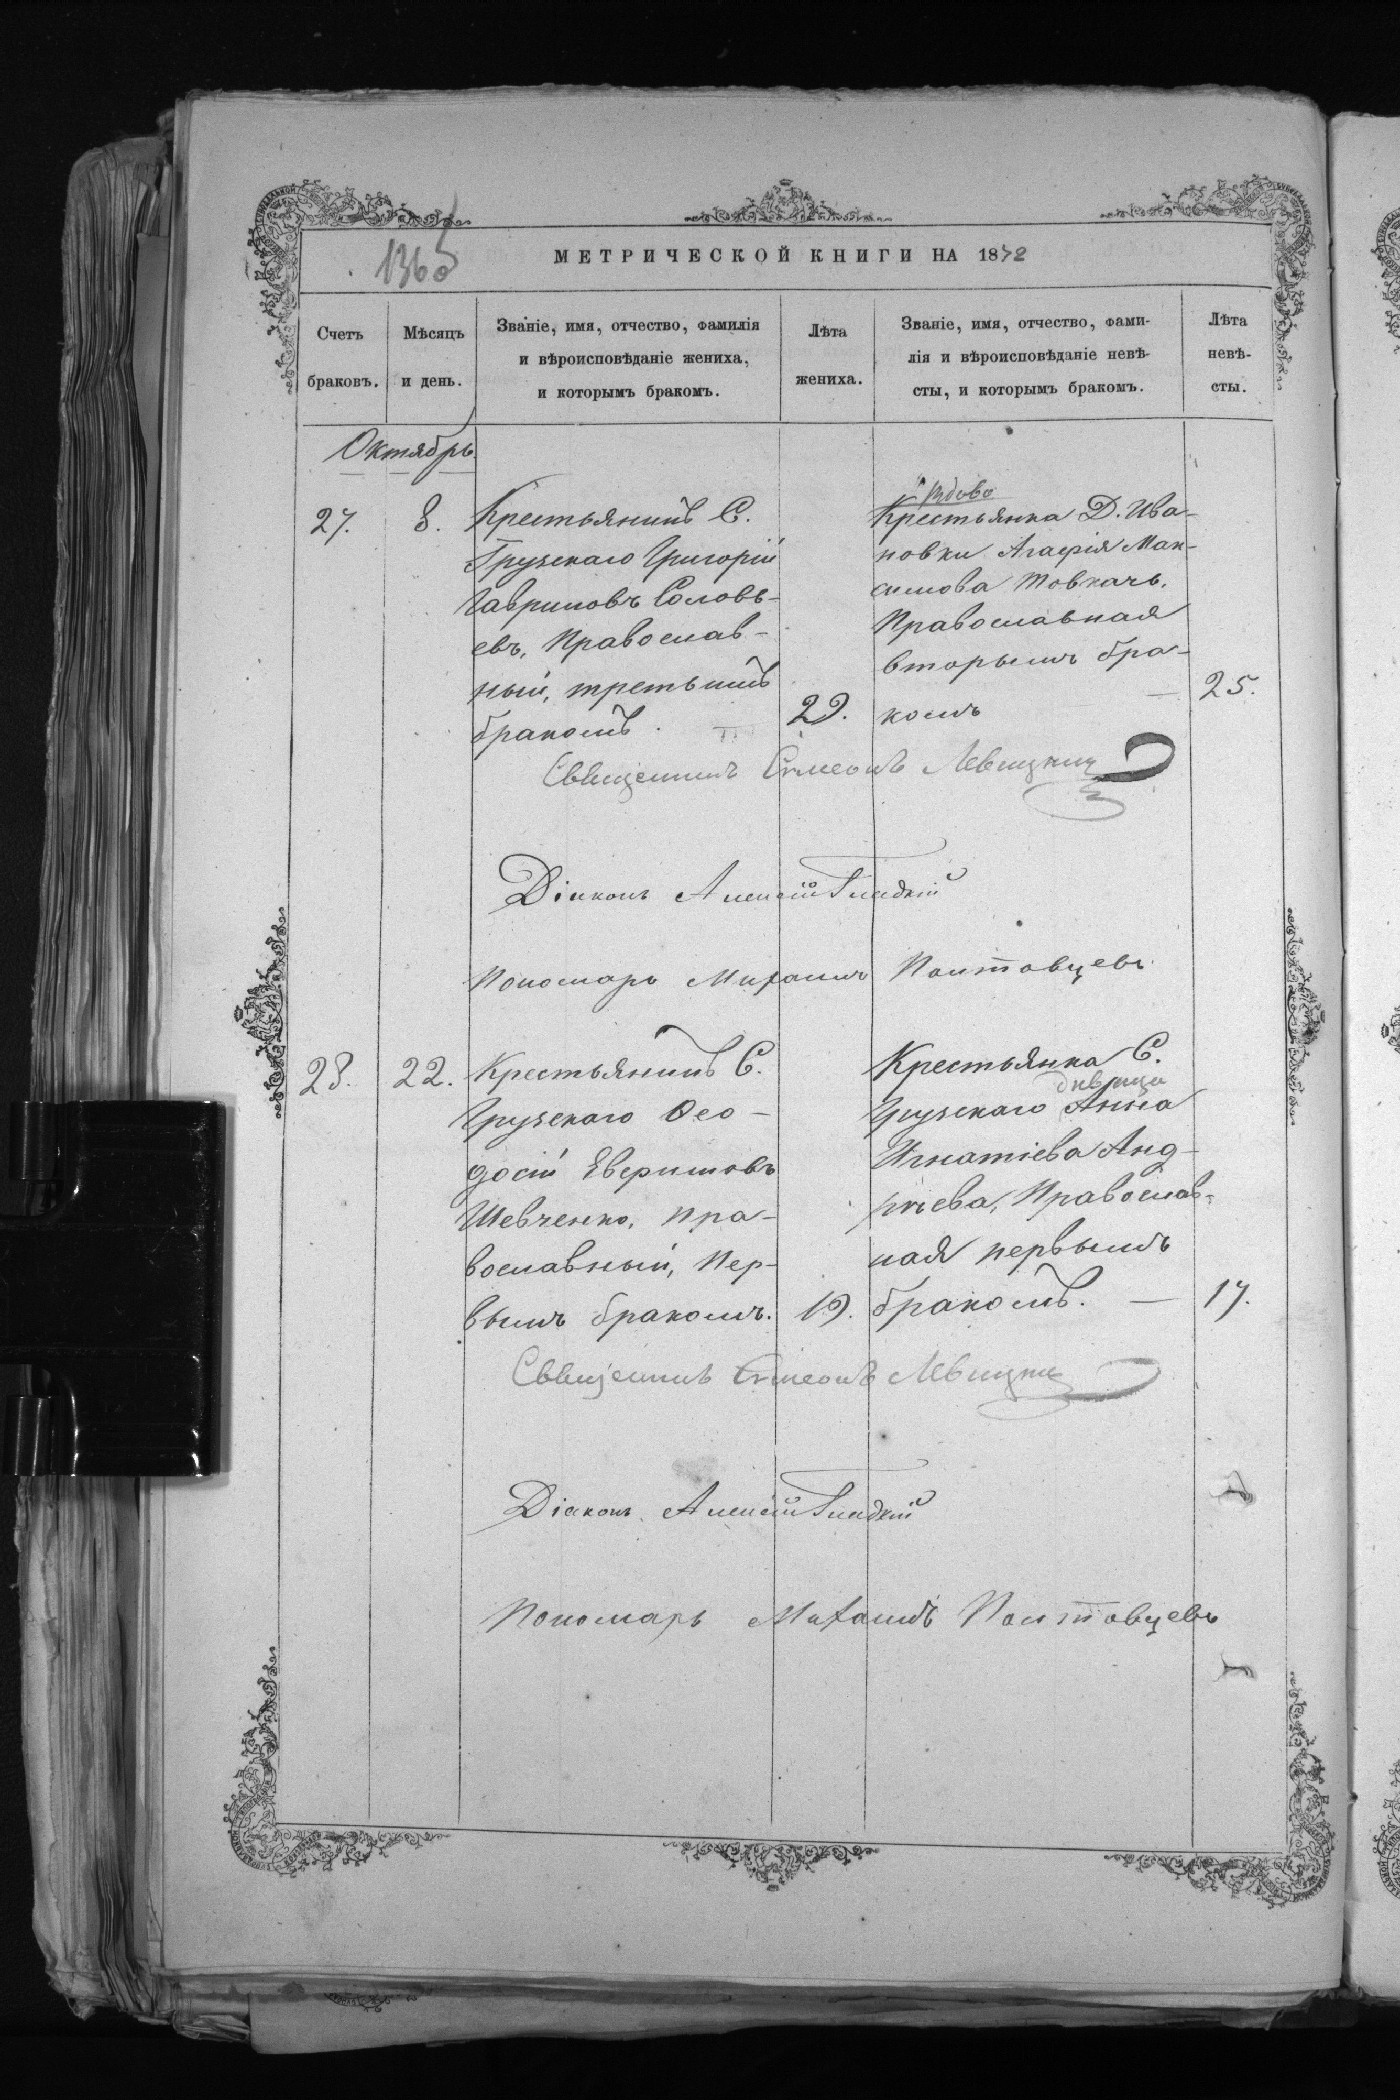 1360
МЕТРИЧЕСКОЙ КНИГИ НА 1872
Счетъ браковъ.
Мѣсяцъ и день.
Званіе, имя, отчество, фамилія и вѣроисповѣданіе жениха, и которымъ бракомъ.
Лѣта жениха.
Званіе, имя, отчество, фами-
лія и вѣроисповѣданіе невѣ-
сты, и которымъ бракомъ.
Лѣта невѣ-
сты.
Октябрь
27.
8.
Крестьянинъ С.
Грузскаго Григорій
Гавриловъ Соловь-
евъ, Православ-
ный, третьимъ
бракомъ.
29.
вдова
Крестьянка Д. Ива-
новки Агафія Мак-
симова Товкачь,
Православная
вторымъ бра-
комъ
25.
Священникъ Симеонъ Левицкий
Діаконъ Алексій Гладкій
Пономарь Михаилъ Полтовцевъ
28.
22.
Крестьянинъ С.
Грузскаго Ѳео-
досій
Шевченко, пра-
вославный, пер-
вымъ бракомъ.
19.
Крестьянка С.
дѣвица
Грузскаго Анна
Игнатіева Анд-
рѣева, Православ-
ная первымъ
бракомъ. —
17.
Священникъ Симеонъ Левицкий
Діаконъ Алексій Гладкій
Пономарь Михаилъ Полтовцевъ